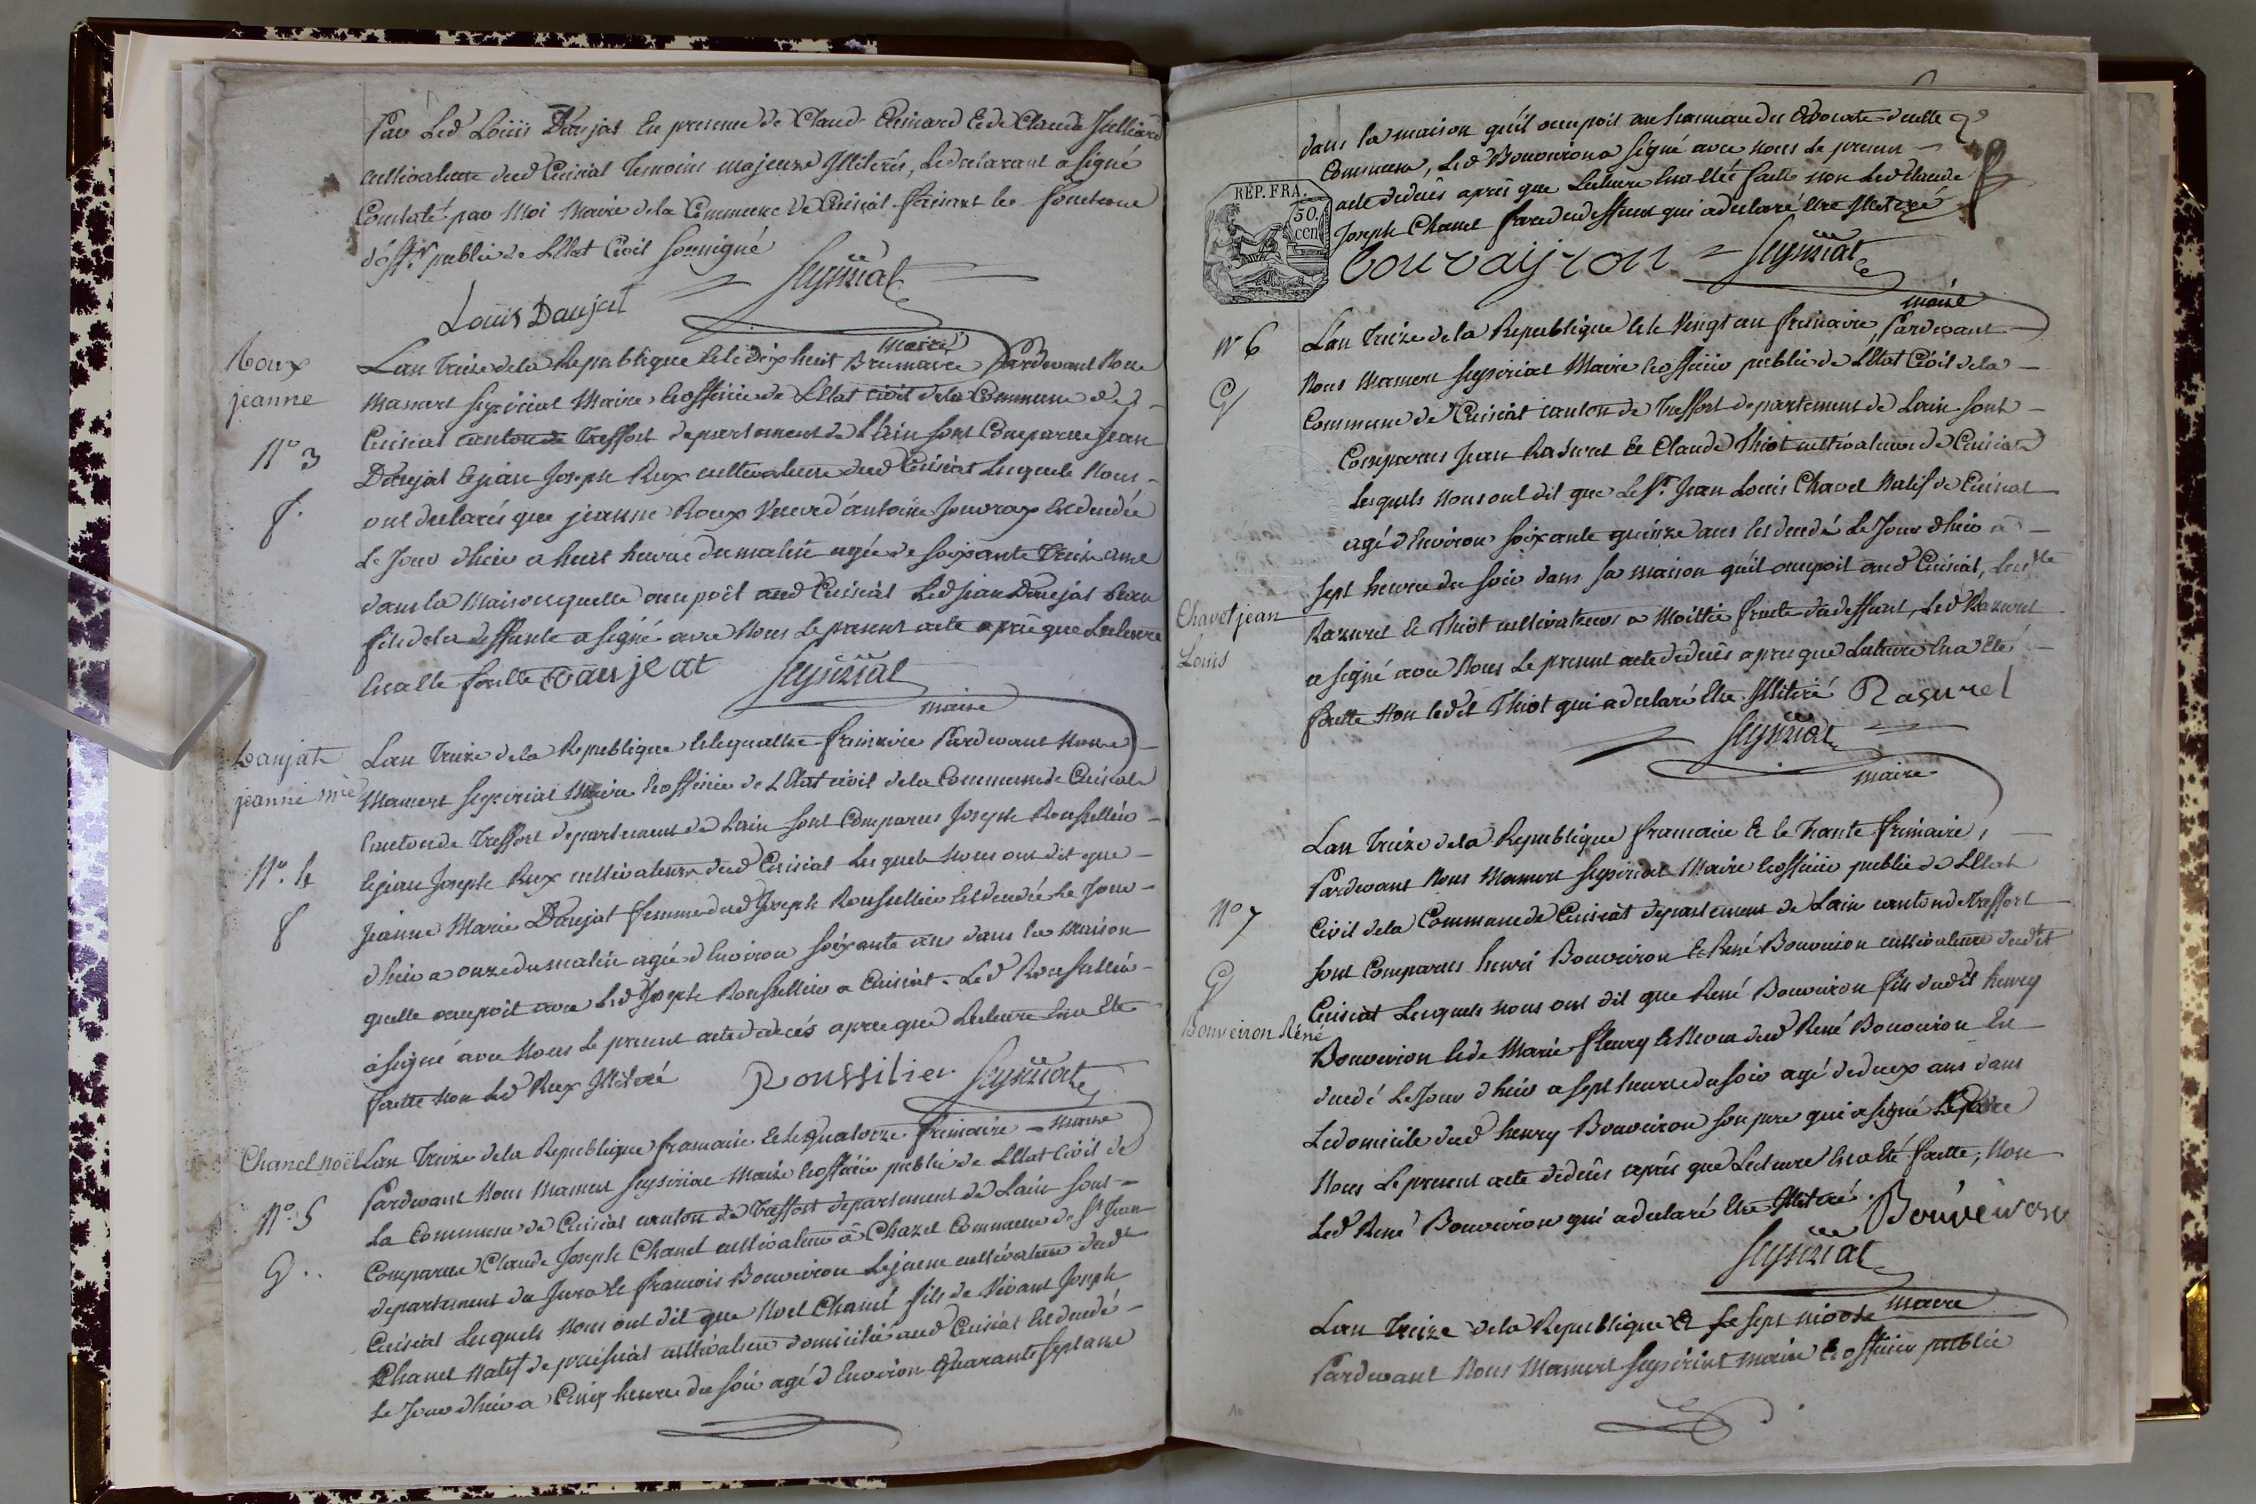 Par Led Louis Daujat En presence de Claude Ecde Claude Juilliard
cultivateurs dud Cuisiat Temoins majeurs Illiterés, Ledeclarant a signé
Constaté par Moi Maire dela Commune de Cuisiat faisant les fonctions
d'off.er public de L'Etat Civil soussigné
Louis Daujat
Seyssiriat
maire
Roux
jeanne
N° 3
f.
Lan Treize dela Republique Et le dix huit Brumaire Pardevant Nous
Mamert Seyssiriat Maire Et officier de L'Etat civil dela Commune de
Cuisiat canton de Treffort departement de L'Ain sont Comparus Jean
Daujat Et jean Joseph Rux cultivateurs dud Cuisiat Lesquels Nous
ont declarés que jeanne Roux Veuve d'antoine Est decedée
Le Jour d'hier a huit heures du matin agée de soixante Treize ans
dans la Maison quelle occupoit aud Cuisiat Led jean Daujat Beau
fils dela deffunte a signé avec Nous Le present acte après que Lecture
En a Eté faitte Daujeat
Seyssiriat
maire
Daujat
jeanne mie
N° 4
f
Lan Treize dela Republique Et le quattre frimaire Pardevant Nous
Mamert Seyssiriat Maire Et officier de L'Etat civil dela Commune de Cuisiat
Canton de Treffort departement de Lain sont Comparus Joseph Roussillier
Et jean Joseph Rux cultivateurs dud Cuisiat Lesquels Nous ont dit que
Jeanne Marie Daujat femme dud Joseph Roussillier Est decedée Le Jour
d'hier a onze du matin agée d'Environ soixante ans dans la Maison
quelle occupoit avec Led Joseph Roussillier a Cuisiat. Led Roussillier
a signé avec Nous Le present acte de decés après que Lecture En a Eté
faitte Non Led Rux Illiteré
Roussilier
Seyssiriat
maire
Chanel noël
N° 5
G.
Lan Treize dela Republique francaise Et le Quatorze frimaire
Pardevant Nous Mamert Seyssiriat Maire Et officier public de L'Etat Civil de
La Commune de Cuisiat canton de Treffort departement de Lain sont
Comparus Claude Joseph Chanel cultivateur a Chazel Commune de St Jean
departement du Jura Et francois Bouveiron Lejeune cultivateur dud
Cuisiat Lesquels Nous ont dit que Noel Chanel fils de Vivant Joseph
Chanel Natif de cultivateur domicilié aud Cuisiat Est decedé
Le Jour d'hier a Cinq heures du soir agé d'Environ Quarante sept ans
dans la maison qu'il occupoit au hameau du decette
Commune, Led Bouveiron a signé avec nous Le present
acte dedecès après que Lecture En a Eté faitte non Led Claude
Joseph Chanel frere dudeffunt qui a declaré Etre Illiteré
RÉP. FRA.
50.
cen
bouvaijron
Seyssiriat
maire
N° 6
G
Lan Treize dela Republique Et le Vingt un frimaire, Pardevant
Nous Mamert Seyssiriat Maire Et officier public de L'Etat Civil dela
Commune de Cuisiat canton de Treffort departement de Lain sont
Comparus Jean Rasurel Et Claude Thiot cultivateurs de Cuisiat
Lesquels Nous ont dit que Le Sr Jean Louis Chavel Natif de Cuisiat
agé d'Environ soixante quinze ans Est decedé Le Jour d'hier a
sept heures du soir dans sa maison qu'il occupoit aud Cuisiat,
Chavet jean
Louis
Razurel Et Thiot cultivateurs dudeffunt, Led Razurel
a signé avec Nous Le present acte dedecès apres que Lecture En a Eté
faitte Non Ledit Thiot qui a declaré Etre Illiteré Rasurel
Seyssiriat
maire
N° 7
G
Bouveiron Réné
Lan Treize dela Republique francaise Et le Trante frimaire,
Pardevant Nous Mamert Seyssiriat Maire Et officier public de L'Etat
Civil dela Commune de Cuisiat departement de Lain canton de Treffort
sont Comparus henri Bouveiron Et René Bouveiron cultivateurs dudit
Cuisiat Lesquels nous ont dit que René Bouveiron fils dudit henry
Bouveiron Et de Marie fleury Et Neveu dud René Bouveiron Est
decedé Le Jour d'hier a sept heures du soir agé de deux ans dans
Ledomicile dud henry Bouveiron son pere qui a signé
Nous Le present acte dedecès après que Lecture En a Eté faitte, Non
Led René Bouveiron qui a declaré Etre Illiteré.
Bouveiron
Seyssiriat
maire
Lan Treize dela Republique Et Le sept nivose
Pardevant Nous Mamert Seyssiriat maire Et officier public